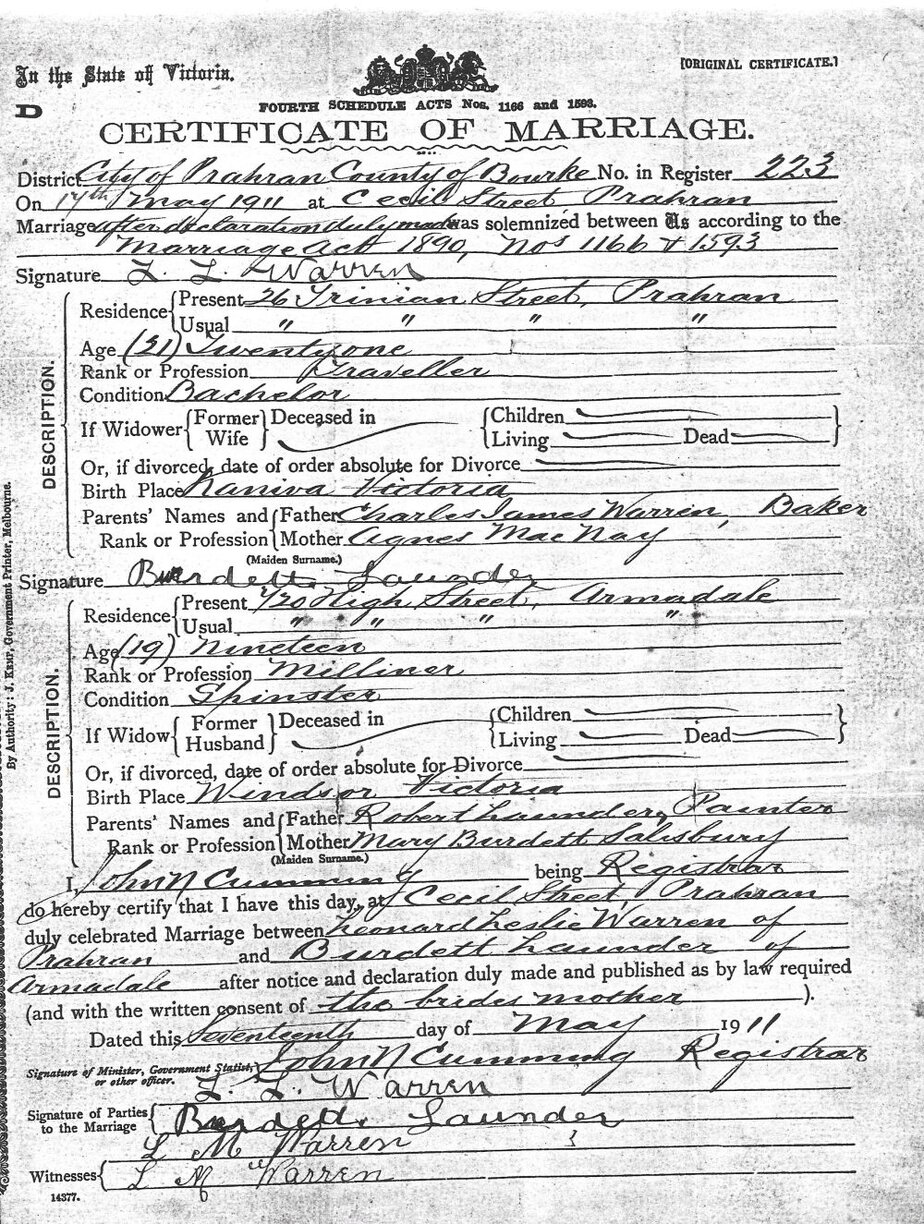 In the State of Victoria.
[ORIGINAL CERTIFICATE.]
D
FOURTH SCHEDULE ACTS Nos. 1166 and 1593.
CERTIFICATE OF MARRIAGE.
District City of Prahran County of Bourke No. in Register 223
On 17th May 1911 at Cecil Street Prahran
Marriage after declaration duly made was solemnized between Us according to the
Marriage Act 1890, Nos 1166 & 1593
Signature L. L. Warren
DESCRIPTION.
Residence { Present 26 Trinian Street, Prahran
Usual " " " "
Age (21) Twenty one
Rank or Profession Traveller
Condition Bachelor
If Widower { Former Wife } Deceased in { Children
Living Dead }
Or, if divorced, date of order absolute for Divorce
Birth Place Kaniva Victoria
Parents' Names and { Father Charles James Warren, Baker
Rank or Profession { Mother Agnes MacNay
(Maiden Surname.)
Signature Burdett Launder
DESCRIPTION.
Residence { Present High Street, Armadale
Usual " " " "
Age (19) Nineteen
Rank or Profession Milliner
Condition Spinster
If Widow { Former Husband } Deceased in { Children
Living Dead }
Or, if divorced, date of order absolute for Divorce
Birth Place Windsor Victoria
Parents' Names and { Father Robert Launder, Painter
Rank or Profession { Mother Mary Burdett Salesbury
(Maiden Surname.)
I, John N Cumming being Registrar
do hereby certify that I have this day, at Cecil Street, Prahran
duly celebrated Marriage between Leonard Leslie Warren of
Prahran and Burdett Launder of
Armadale after notice and declaration duly made and published as by law required
(and with the written consent of the brides mother ).
Dated this Seventeenth day of May 1911
Signature of Minister, Government Statist, or other officer. } John N Cumming Registrar
Signature of Parties to the Marriage { L. L. Warren
Burdett Launder
Witnesses { L M Warren
L M Warren
14377.
By Authority: J. KEMP, Government Printer, Melbourne.